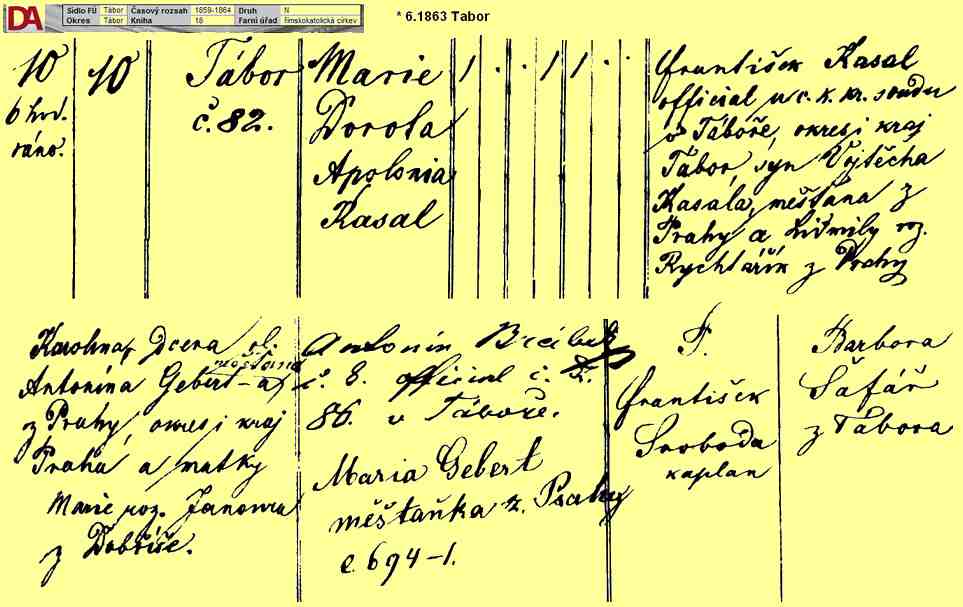 DA
Sídlo FÚ Tábor Časový rozsah 1859-1864 Druh N
Okres Tábor Kniha 18 Farní úřad římskokatolická církev
* 6.1863 Tabor
10
6 hod.
ráno.
10
Tábor
č. 82.
Marie
Dorota
Apolonia
Kasal
1 . . 1 1 . .
František Kasal
official u c. k. kr. soudu
v Táboře, okres i kraj
Tábor, syn Vojtěcha
Kasala, měšťana z
Prahy a Lidmily roz.
Rychtářík z Prahy
Karolina, Dcera
měšťana
Antonína Gebert-a
z Prahy, okres i kraj
Praha a matky
Marie roz. Janowa
z Dobříše.
Antonín
č. 8. official č.
86. v Táboře.
Maria Gebert
měšťaňka z Prahy
č. 694-1.
F.
František
Svoboda
kaplan
Barbora
Šafář
z Tábora